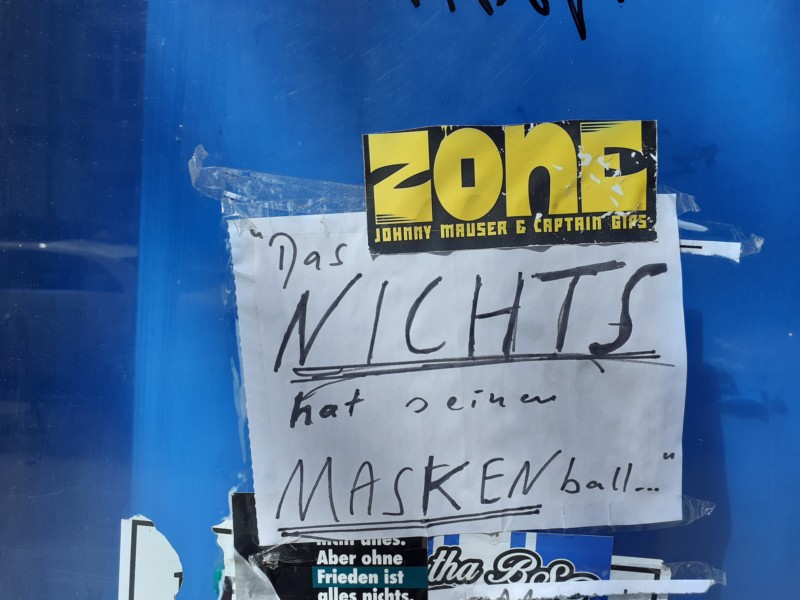 ZONE
JOHNNY MAUSER & CAPTAIN GIPS
"Das
NICHTS
hat seinen
MASKENball..."
nicht alles.
Aber ohne
Frieden ist
alles nichts.
tha BSC